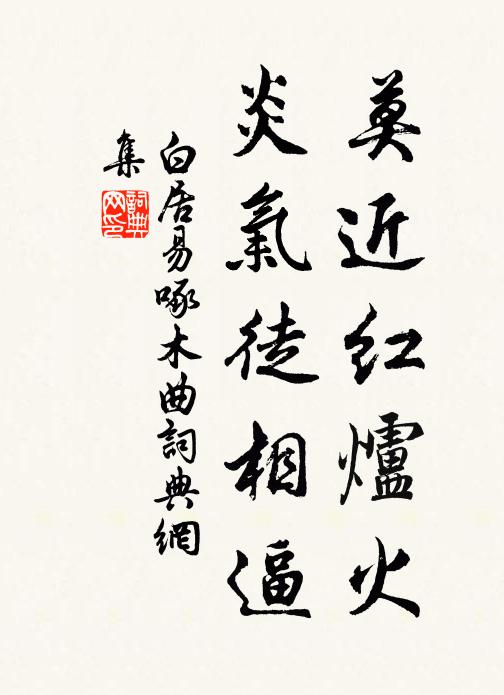 莫近红爐火
炎氣徒相逼
白居易啄木曲詞典網
集
詞典
网印